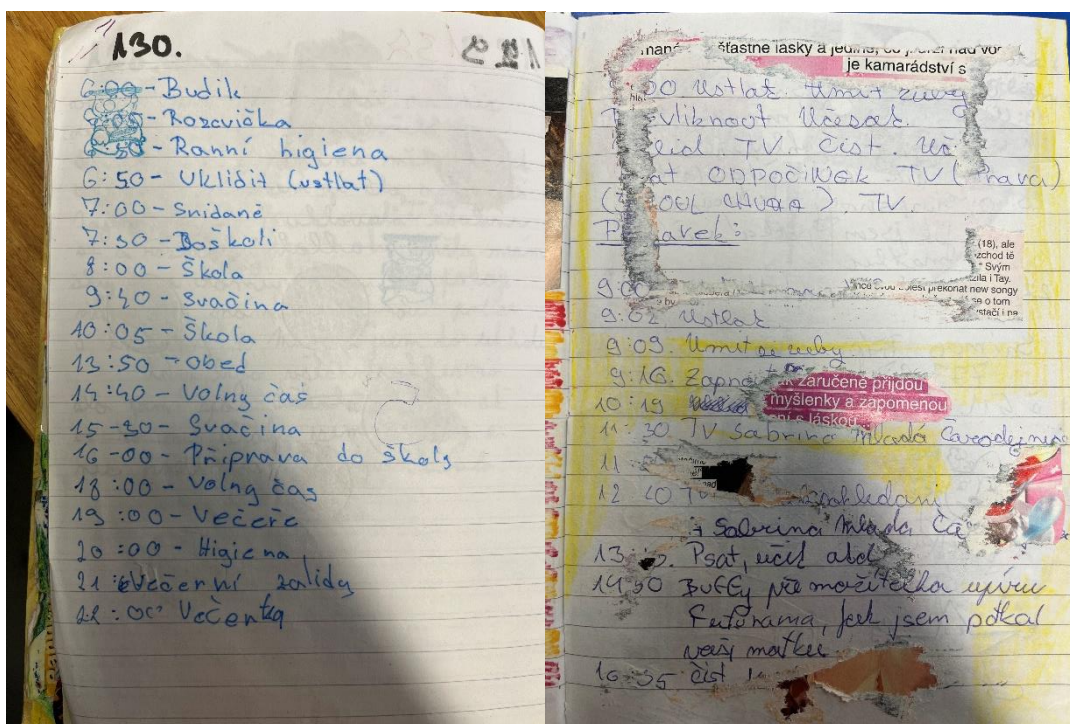 130.
6:00 - Budík
05 - Rozcvička
6:30 - Ranní higiena
6:50 - Uklidit (ustlat)
7:00 - Snídaně
7:30 - Doškoli
8:00 - Škola
9:40 - Svačina
10:05 - Škola
13:50 - Obed
14:40 - Volny čas
15-30 - Svačina
16-00 - Připrava do školy
18:00 - Volny čas
19:00 - Večeře
20:00 - Higiena
21: Večerní
22:00 Večerka
šťastné lásky a
je kamarádství s
00 Ustlat. Umit zuby
Učesat.
TV. Číst. Uč
ODPOČINEK TV (Prava)
TV.
(18), ale
zchod tě
Svým
zila i Tay.
překonat new songy
se o tom
9:00
9:02 Ustlat
9:09. Umit se zuby
9:16. Zapno
k zaručeně přijdou
myšlenky a zapomenou
ní s láskou
10:19
11:30 TV Sabrina mladá čarodejnice
11
12 20 TV
+ Sabrina mlada ča
13 Psat, učit abd
14 50 Buffy přemožitelka upíru
Futurama, Jak jsem potkal
vaši matku
16-35 číst